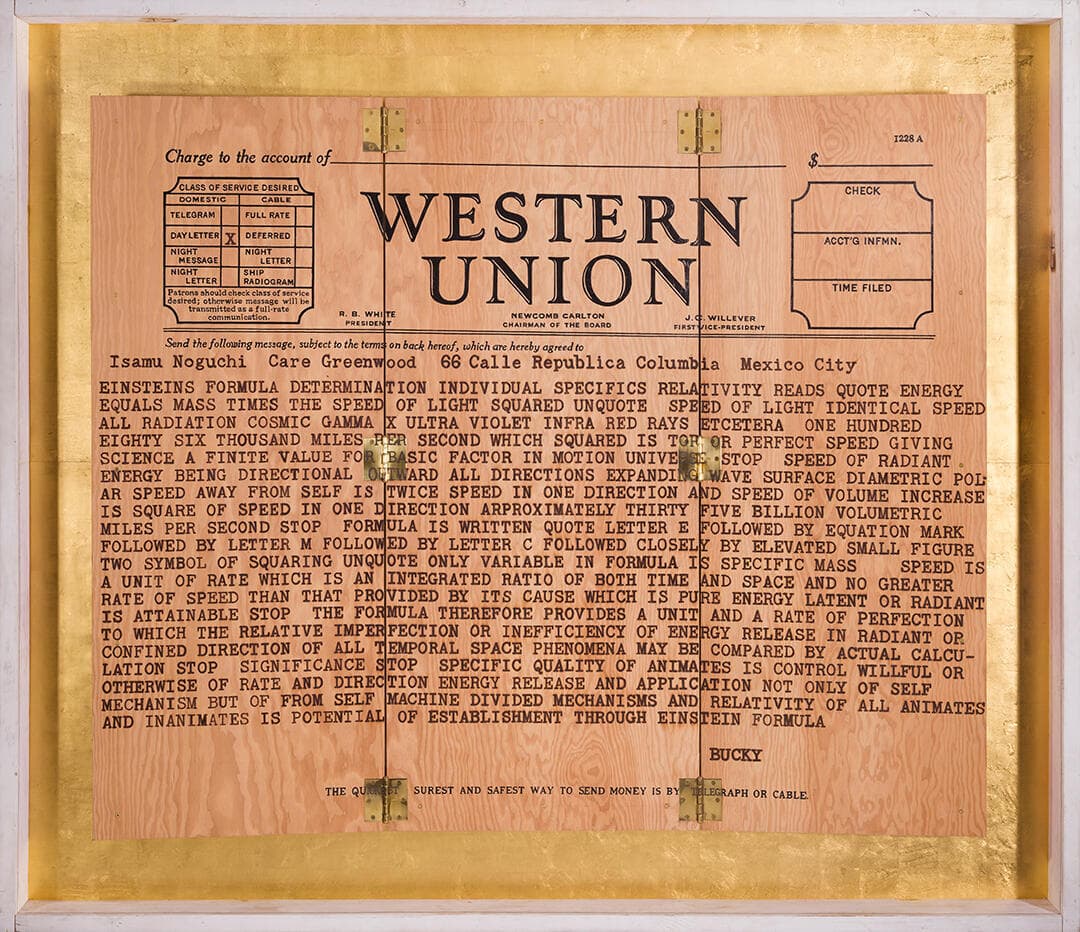 1228 A
Charge to the account of $
CLASS OF SERVICE DESIRED
DOMESTIC CABLE
TELEGRAM FULL RATE
DAY LETTER X DEFERRED
NIGHT MESSAGE NIGHT LETTER
NIGHT LETTER SHIP RADIOGRAM
Patrons should check class of service
desired; otherwise message will be
transmitted as a full-rate
communication.
WESTERN
UNION
R. B. WHITE
PRESIDENT
NEWCOMB CARLTON
CHAIRMAN OF THE BOARD
J. C. WILLEVER
FIRST VICE-PRESIDENT
CHECK
ACCT'G INFMN.
TIME FILED
Send the following message, subject to the terms on back hereof, which are hereby agreed to
Isamu Noguchi Care Greenwood 66 Calle Republica Columbia Mexico City
EINSTEINS FORMULA DETERMINATION INDIVIDUAL SPECIFICS RELATIVITY READS QUOTE ENERGY
EQUALS MASS TIMES THE SPEED OF LIGHT SQUARED UNQUOTE SPEED OF LIGHT IDENTICAL SPEED
ALL RADIATION COSMIC GAMMA X ULTRA VIOLET INFRA RED RAYS ETCETERA ONE HUNDRED
EIGHTY SIX THOUSAND MILES PER SECOND WHICH SQUARED IS TOP OR PERFECT SPEED GIVING
SCIENCE A FINITE VALUE FOR BASIC FACTOR IN MOTION UNIVERSE STOP SPEED OF RADIANT
ENERGY BEING DIRECTIONAL OUTWARD ALL DIRECTIONS EXPANDING WAVE SURFACE DIAMETRIC POL-
AR SPEED AWAY FROM SELF IS TWICE SPEED IN ONE DIRECTION AND SPEED OF VOLUME INCREASE
IS SQUARE OF SPEED IN ONE DIRECTION ARPROXIMATELY THIRTY FIVE BILLION VOLUMETRIC
MILES PER SECOND STOP FORMULA IS WRITTEN QUOTE LETTER E FOLLOWED BY EQUATION MARK
FOLLOWED BY LETTER M FOLLOWED BY LETTER C FOLLOWED CLOSELY BY ELEVATED SMALL FIGURE
TWO SYMBOL OF SQUARING UNQUOTE ONLY VARIABLE IN FORMULA IS SPECIFIC MASS SPEED IS
A UNIT OF RATE WHICH IS AN INTEGRATED RATIO OF BOTH TIME AND SPACE AND NO GREATER
RATE OF SPEED THAN THAT PROVIDED BY ITS CAUSE WHICH IS PURE ENERGY LATENT OR RADIANT
IS ATTAINABLE STOP THE FORMULA THEREFORE PROVIDES A UNIT AND A RATE OF PERFECTION
TO WHICH THE RELATIVE IMPERFECTION OR INEFFICIENCY OF ENERGY RELEASE IN RADIANT OR
CONFINED DIRECTION OF ALL TEMPORAL SPACE PHENOMENA MAY BE COMPARED BY ACTUAL CALCU-
LATION STOP SIGNIFICANCE STOP SPECIFIC QUALITY OF ANIMATES IS CONTROL WILLFUL OR
OTHERWISE OF RATE AND DIRECTION ENERGY RELEASE AND APPLICATION NOT ONLY OF SELF
MECHANISM BUT OF FROM SELF MACHINE DIVIDED MECHANISMS AND RELATIVITY OF ALL ANIMATES
AND INANIMATES IS POTENTIAL OF ESTABLISHMENT THROUGH EINSTEIN FORMULA
BUCKY
THE QUICKEST SUREST AND SAFEST WAY TO SEND MONEY IS BY TELEGRAPH OR CABLE.